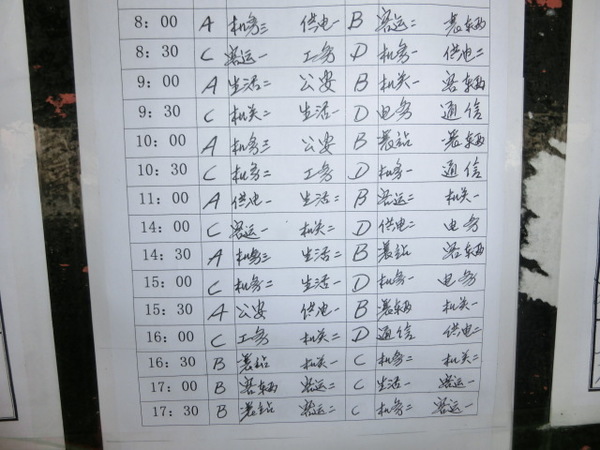 8: 00 A 机务三 供电一 B 客运二 襄辆
8: 30 C 客运一 工务 D 机务一 供电二
9: 00 A 生活二 公安 B 机关一 客辆
9: 30 C 机关二 生活一 D 电务 通信
10: 00 A 机务三 公安 B 襄站 襄辆
10: 30 C 机务二 工务 D 机务一 通信
11: 00 A 供电一 生活二 B 客运二 机关一
14: 00 C 客运一 机关二 D 供电二 电务
14: 30 A 机务三 生活二 B 襄站 客辆
15: 00 C 机务二 生活一 D 机务一 电务
15: 30 A 公安 供电一 B 襄辆 机关一
16: 00 C 工务 机关二 D 通信 供电二
16: 30 B 襄站 机关一 C 机务二 机关二
17: 00 B 客辆 客运二 C 生活一 客运一
17: 30 B 襄站 客运二 C 机务二 客运一